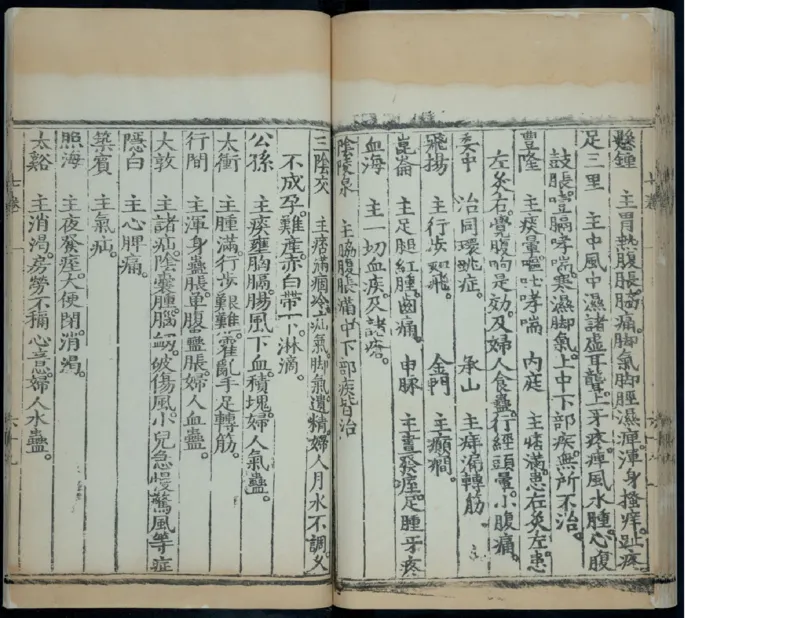 懸鍾　主胃熱腹脹。脇痛。脚氣脚脛濕痺渾身搔痒趾疼
足三里　主中風中濕諸虛耳聾。上牙疼。痺風水腫。心腹
鼓脹。噎膈哮喘。寒濕脚氣。上中下部疾。無所不治。
豐隆　主痰暈。嘔吐哮喘　內庭　主痞滿。患右灸左。患
左灸右。覺腹响是効。及婦人食蠱。行經頭暈。小腹痛。
委中　治同環跳症。　承山　主痔漏轉筋。
飛揚　主行步如飛。　金門　主癲癇。
崑崙　主足腿紅腫。齒痛。　申脉　主晝發痓。足腫牙疼
血海　主一切血疾。及諸瘡。
陰陵泉　主脇腹脹痛中下部疾皆治
三陰交　主痞滿痼冷。疝氣。脚氣。遺精。婦人月水不調。久
不成孕。難產。赤白帶下。淋滴。
公孫　主痰壅胸膈。腸風下血。積塊。婦人氣蠱。
太衝　主腫滿。行步艱難。霍亂手足轉筋。
行間　主渾身蠱脹。單腹蠱脹婦人血蠱。
大敦　主諸疝。陰囊腫。腦衂。破傷風小兒急慢驚風等症
隱白　主心脾痛。
築賓　主氣疝。
照海　主夜發痓。大便閉。消渴。
太谿　主消渴。房勞不稱心意。婦人水蠱。
七卷